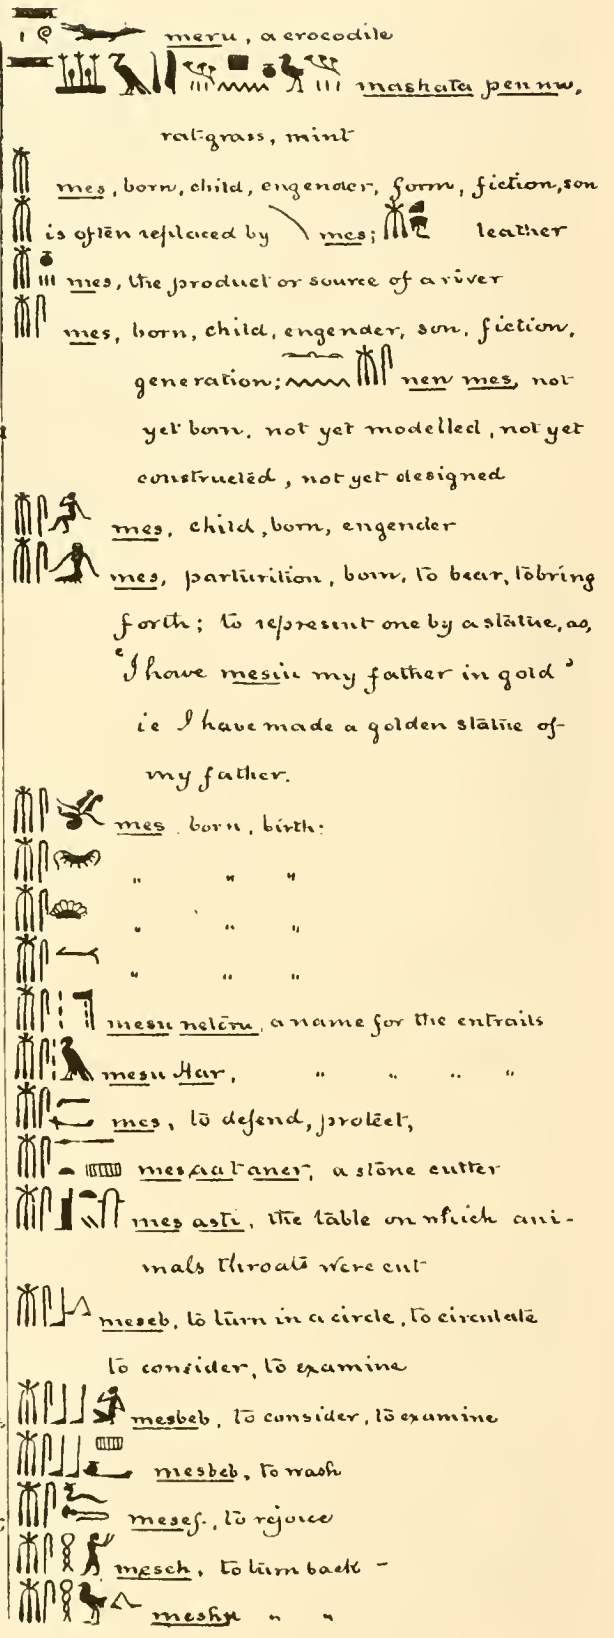 meru, a crocodile
mashata pennu,
rat-grass, mint
mes, born, child, engender, form, fiction, son
is often replaced by mes; leather
mes, the product or source of a river
mes, born, child, engender, son, fiction,
generation; nen mes, not
yet born, not yet modelled, not yet
constructed, not yet designed
mes, child, born, engender
mes, parturition, born, to bear, to bring
forth; to represent one by a statue, as,
"I have mesiu my father in gold"
ie I have made a golden statue of
my father.
mes born, birth:
" " "
" " "
" " "
mesu neteru, a name for the entrails
mesu Har, " " " "
mes, to defend, protect,
mesaat aner, a stone cutter
mes asti, the table on which ani-
mals throats were cut
meseb, to turn in a circle, to circulate
to consider, to examine
mesbeb, to consider, to examine
mesbeb, to wash
mesef, to rejoice
mesch, to turn back -
meshu " "